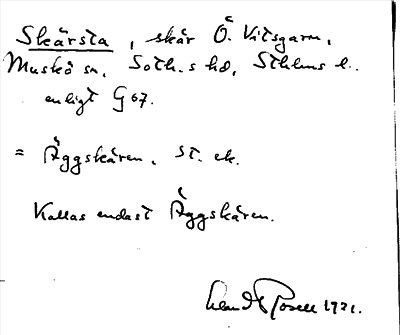 Skärsta, skär Ö. Vitsgarn,
Muskö sn, Soth.s hd, Sthlms l.
enligt G 67.
= Äggskären. St. ek.
Kallas endast Äggskären.
1921.